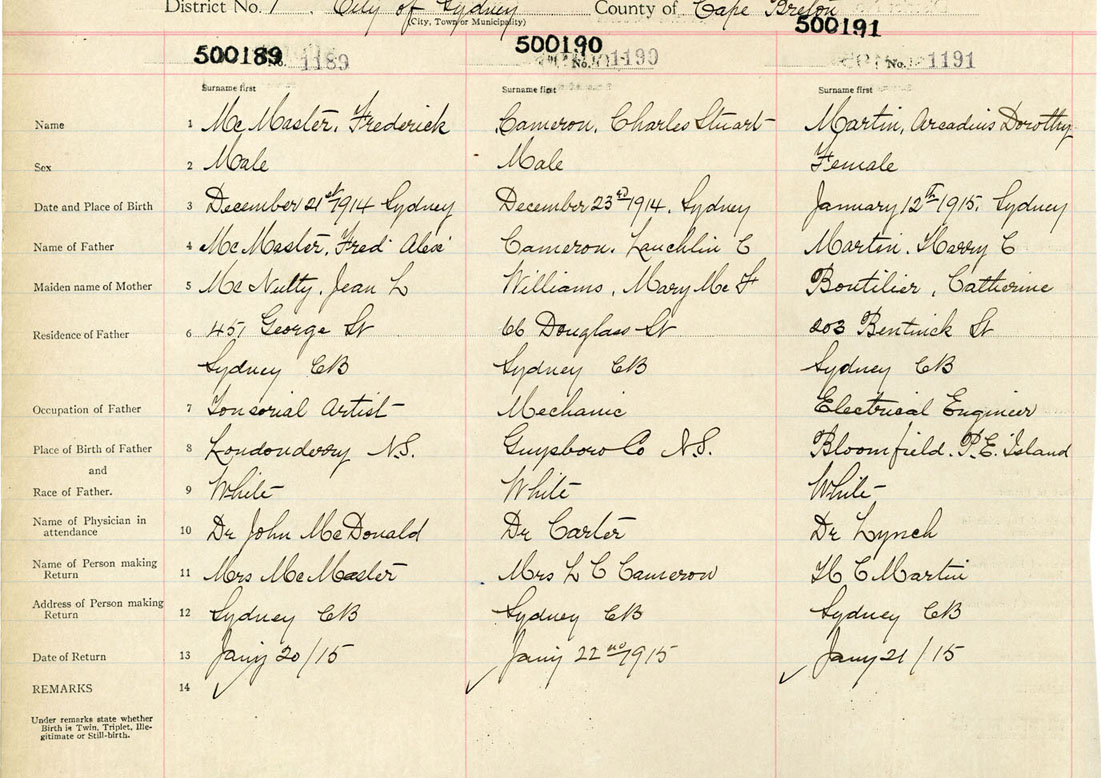 District No. 1 City of Sydney County of Cape Breton
(City, Town or Municipality)
500189 500190 500191
No. 1189 No. 1190 No. 1191
Surname first Surname first Surname first
Name 1 McMaster, Frederick Cameron, Charles Stuart Martin, Arcadius Dorothy
Sex 2 Male Male Female
Date and Place of Birth 3 December 21st 1914 Sydney December 23rd 1914, Sydney January 12th 1915, Sydney
Name of Father 4 McMaster, Fred Alex Cameron, Lauchlin C Martin, Harry C
Maiden name of Mother 5 McNutty, Jean L Williams, Mary Mc F Boutilier, Catherine
Residence of Father 6 451 George St 66 Douglass St 203 Bentinck St
Sydney CB Sydney CB Sydney CB
Occupation of Father 7 Tonsorial Artist Mechanic Electrical Engineer
Place of Birth of Father 8 Londonderry N.S. Guysboro Co N.S. Bloomfield. P.E. Island
and
Race of Father. 9 White White White
Name of Physician in
attendance 10 Dr John McDonald Dr Carter Dr Lynch
Name of Person making
Return 11 Mrs McMaster Mrs L C Cameron H C Martin
Address of Person making
Return 12 Sydney CB Sydney CB Sydney CB
Date of Return 13 Jany 20/15 Jany 22nd 1915 Jany 21/15
REMARKS 14
Under remarks state whether
Birth is Twin, Triplet, Ille-
gitimate or Still-birth.